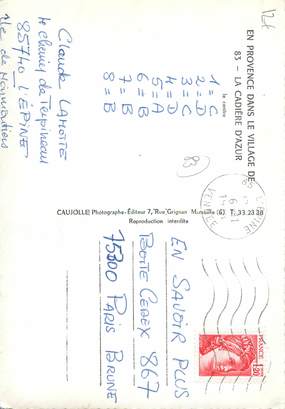 12k
EN PROVENCE DANS LE VILLAGE DE
83 - LA CADIÈRE D'AZUR
1=C
2=D
3=C
4=D
5=A
6=B
7=B
8=B
Claude LAMOTTE
85740 L'ÉPINE
Île de Noirmoutier
83
CAUJOLLE Photographe-Éditeur 7, Rue Grignan Marseille (6) T. 33.23.38
Reproduction interdite
L'EPINE
VENDEE
EN SAVOIR PLUS
BOITE CEDEX 867
75300 PARIS BRUNE
FRANCE
1,20